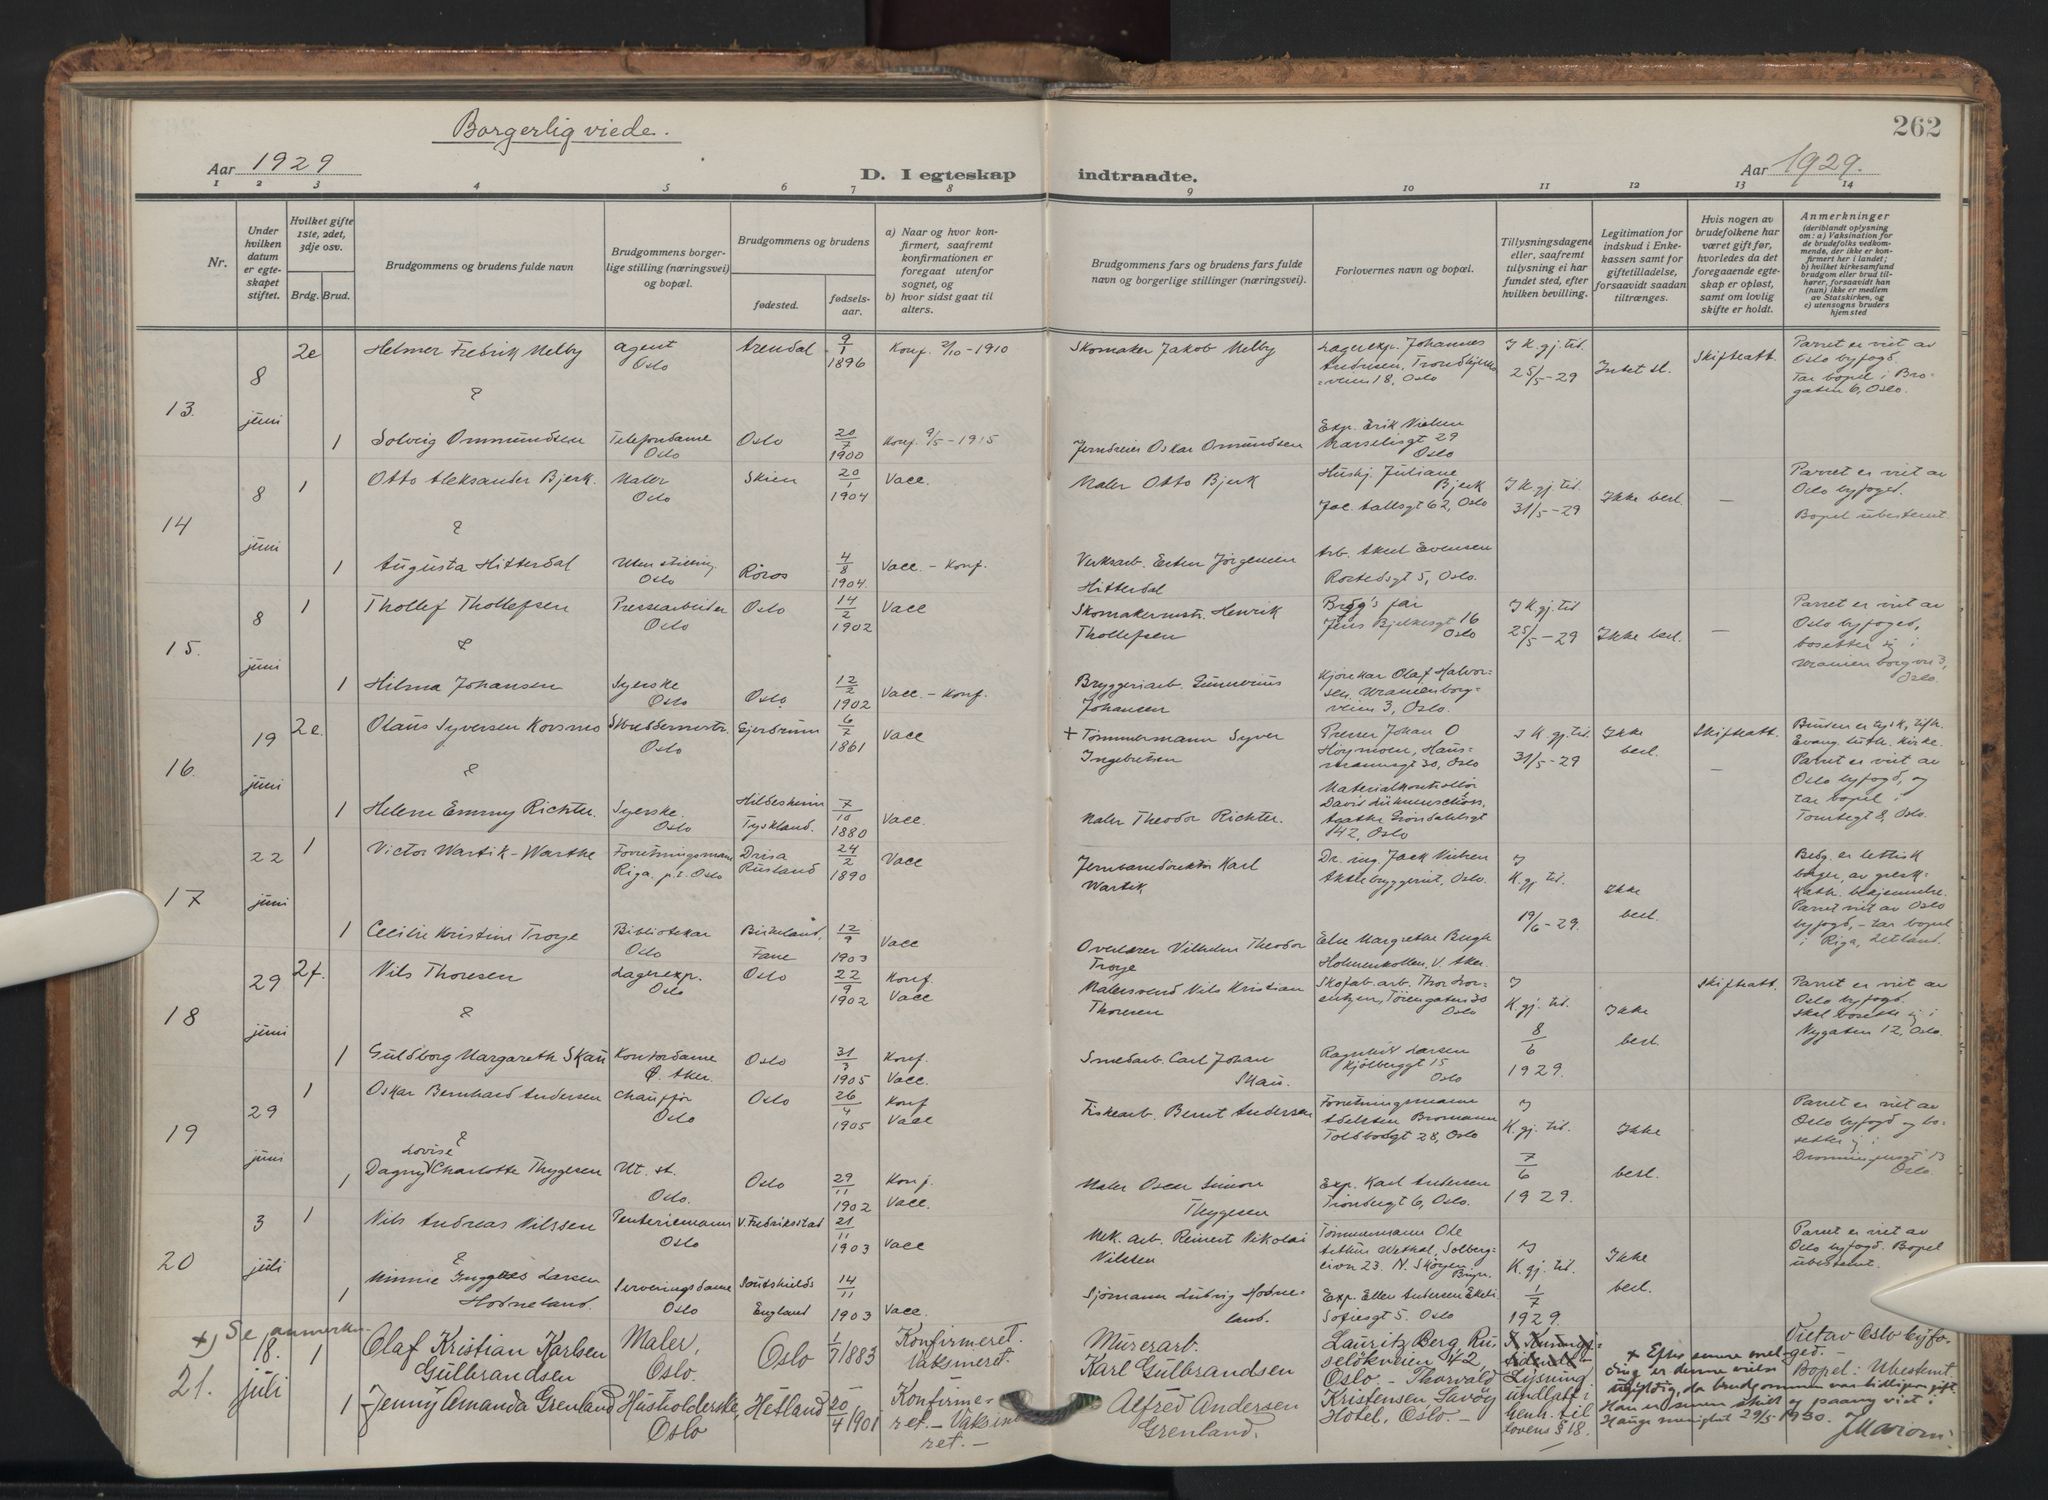 Borgerlig viede.
262
Aar 1929
D. I egteskap indtraadte.
Aar 1929.
1 2 3 4 5 6 7 8 9 10 11 12 13 14
Nr.
Under hvilken datum er egteskapet stiftet.
Hvilket gifte 1ste, 2det, 3dje osv.
Brdg. Brud.
Brudgommens og brudens fulde navn
Brudgommens borgerlige stilling (næringsvei) og bopæl.
Brudgommens og brudens
fødested.
fødselsaar.
a) Naar og hvor konfirmert, saafremt konfirmationen er foregaat utenfor sognet, og
b) hvor sidst gaat til alters.
Brudgommens fars og brudens fars fulde navn og borgerlige stillinger (næringsvei).
Forlovernes navn og bopæl.
Tillysningsdagene eller, saafremt tillysning ei har fundet sted, efter hvilken bevilling.
Legitimation for indskud i Enkekassen samt for giftetilladelse, forsaavidt saadan tiltrænges.
Hvis nogen av brudefolkene har været gift før, hvorledes da det foregaaende egteskap er opløst, samt om lovlig skifte er holdt.
Anmerkninger (deriblandt oplysning om: a) Vaksination for de brudefolks vedkommende, der ikke er konfirmert her i landet; b) hvilket kirkesamfund brudgom eller brud tilhører, forsaavidt han (hun) ikke er medlem av Statskirken, og c) utensogns bruders hjemsted
13. 8 juni 2e Helmer Fredrik Melby agent Oslo Arendal 9/1 1896 Konf. 2/10-1910 Skomaker Jakob Melby Lagerexp. Johannes Andresen, Trondhjemsveien 18, Oslo I K. gj. tid. 25/5-29 Intet sl. Skifteatt. Parret er viet av Oslo byfogd. Tar bopel i Brogaten 6, Oslo.
&
1 Solveig Ommundsen Telefondame Oslo Oslo 20/7 1900 Konf. 9/5-1915 Jerndreier Oskar Omundsen Exp. Erik Nielsen 29 Oslo
14 8 juni 1 Otto Aleksander Bjerk. Maler Oslo Skien 20/1 1904 Vacc. Maler Otto Bjerk Hushj. Juliane Bjerk Jac. Aallsgt 62, Oslo I K. gj. tid. 31/5-29 Ikke besl. — Parret er viet av Oslo byfoged. Bopel ubestemt
&
1 Augusta Hitterdal Uten stilling. Oslo Røros 4/8 1904. Vacc. - Konf. Verksarb. Esten Jørgensen Hitterdal Arb. Aksel Evensen Rostedsgt 5, Oslo.
15. 8 juni 1 Thollef Thollefsen Pressearbeider Oslo Oslo 14/2 1902 Vacc Skomakermstr. Henrik Thollefsen Brdg's far Jens Bjelkesgt 16 Oslo I K. gj. tid 25/5-29 Ikke besl. — Parret er viet av Oslo byfoged, bosetter sig i Uranienborgvn 3, Oslo.
&
1 Hilma Johansen Syerske Oslo Oslo 12/2 1902 Vacc. - Konf. Bryggeriarb. Gunnerius Johansen Kjørekar Olaf Halvorsen, Uranienborgveien 3, Oslo.
16. 19 juni 2e. Olaus Syversen Korsmo Skreddermestr. Oslo Gjerdrum 6/7 1861 Vacc + Tømmermann Syver Ingebretsen Johan O Høymoen, Hausmannsgt 30, Oslo I K. gj. tid. 31/5-29 Ikke besl. Skifteatt. — Bruden er tysk, tilh. Evang. luth. Kirke. Parret er viet av Oslo byfogd, og tar bopel i Tomtegt 8, Oslo.
&
1 Helene Emmy Richter. Syerske. Oslo Hildesheim Tyskland. 7/10 1880 Vacc. Maler Theodor Richter. Materialkontrollør David Agathe Grøndahlsgt 42, Oslo
17 22 juni 1 Victor Wartik-Warthe Forretningsmann Riga. p.t. Oslo Drisa Rusland 24/2 1890 Vacc Jernbanedirektør Karl Wartik Dr. ing. Jack Nielsen Aktiebryggeriet, Oslo. I K. gj. tid. 19/6-29. Ikke besl. Brdg. er lettisk borger, av græsk-kath. bekjennelse. Parret viet av Oslo byfogd, - tar bopel i Riga, Letland.
1 Cecilie Kristine Troye Bibliotekar Oslo Birkeland, Fane 12/9 1903 Vacc Overlærer Vilhelm Theodor Troye Else Margrethe Bugh Holmenkollen, V. Aker.
18 29 juni 2f. Nils Thoresen Lagerexp. Oslo Oslo 22/9 1902 Konf. Vacc Malersvend Nils Kristian Thoresen Skofab. arb. Thor Lorentzen, Tøiengaten 30 Oslo I K. gj. tid. 8/6 1929. Ikke besl. Skifteatt. Parret er viet av Oslo byfogd. Skal bosette sig i Nygaten 12, Oslo.
&
1 Guldborg Margareth Skau Kontordame Ø. Aker. Oslo 31/3 1905 Konf. Vacc. Smedarb. Carl Johan Skau. Ragnhild Larsen Kjølberggt 15 Oslo
19 29 juni 1 Oskar Bernhard Andersen Chauffør Oslo Oslo 26/4 1905 Konf Vacc Fiskearb. Bernt Andersen Forretningsmann Adelsten Bromann Toldbodgt 28, Oslo I K. gj. tid. 7/6 1929. Ikke besl. Parret er viet av Oslo byfogd og bosetter sig i Dronningensgt 13 Oslo.
&
1 Dagny Lovise Charlotte Thygesen Ut. st. Oslo. Oslo 29/11 1902 Konf. Vacc. Maler Oscar Simon Thygesen Exp. Karl Andersen Tromsøgt 6, Oslo.
20 3 juli 1 Nils Andreas Nilssen Penteriemann Oslo V. Fredriksstad 21/11 1903 Vacc Mek. arb. Reinert Nikolai Nilsen Tømmermann Ole Arthur Wethal, Solbergeivn 23. N. Skøyen Brgn. I K. gj. tid. 1/7 1929. Ikke besl. Parret er viet av Oslo byfogd. Bopel ubestemt.
&
1 Minnie Larsen Hodneland. Serveringsdame Oslo Soutshields England 14/11 1903 Vacc. Sjømann Ludvig Hodneland. Exp. Ellen Andersen Ekeli Sofiesgt 5. Oslo
+) Se anmerkn.
21. 18. juli 1 Olaf Kristian Karlsen Gulbrandsen Maler, Oslo. Oslo 1/7 1883 Konfirmeret. Vaksineret. Murerarb. Karl Gulbrandsen Lauritz Berg Ruseløkveien 42, Oslo. - Thorvald Kristensen Savoy Hotel, Oslo. - Lysning undlatt i Henh. til lovens § 18. Viet av Oslo byfoged. Bopel: Ubestemt
1 Jenny Amanda Grenland Husholderske, Oslo Hetland 20/4 1901 Konfirmeret. - Vaksineret. - Alfred Andersen Grenland.
+ Efter senere meldding er denne vielse ugyldig, da brudgommen var tidligere gift. Han er senere skilt og paany viet i Hauge menighet 29/5 1930.